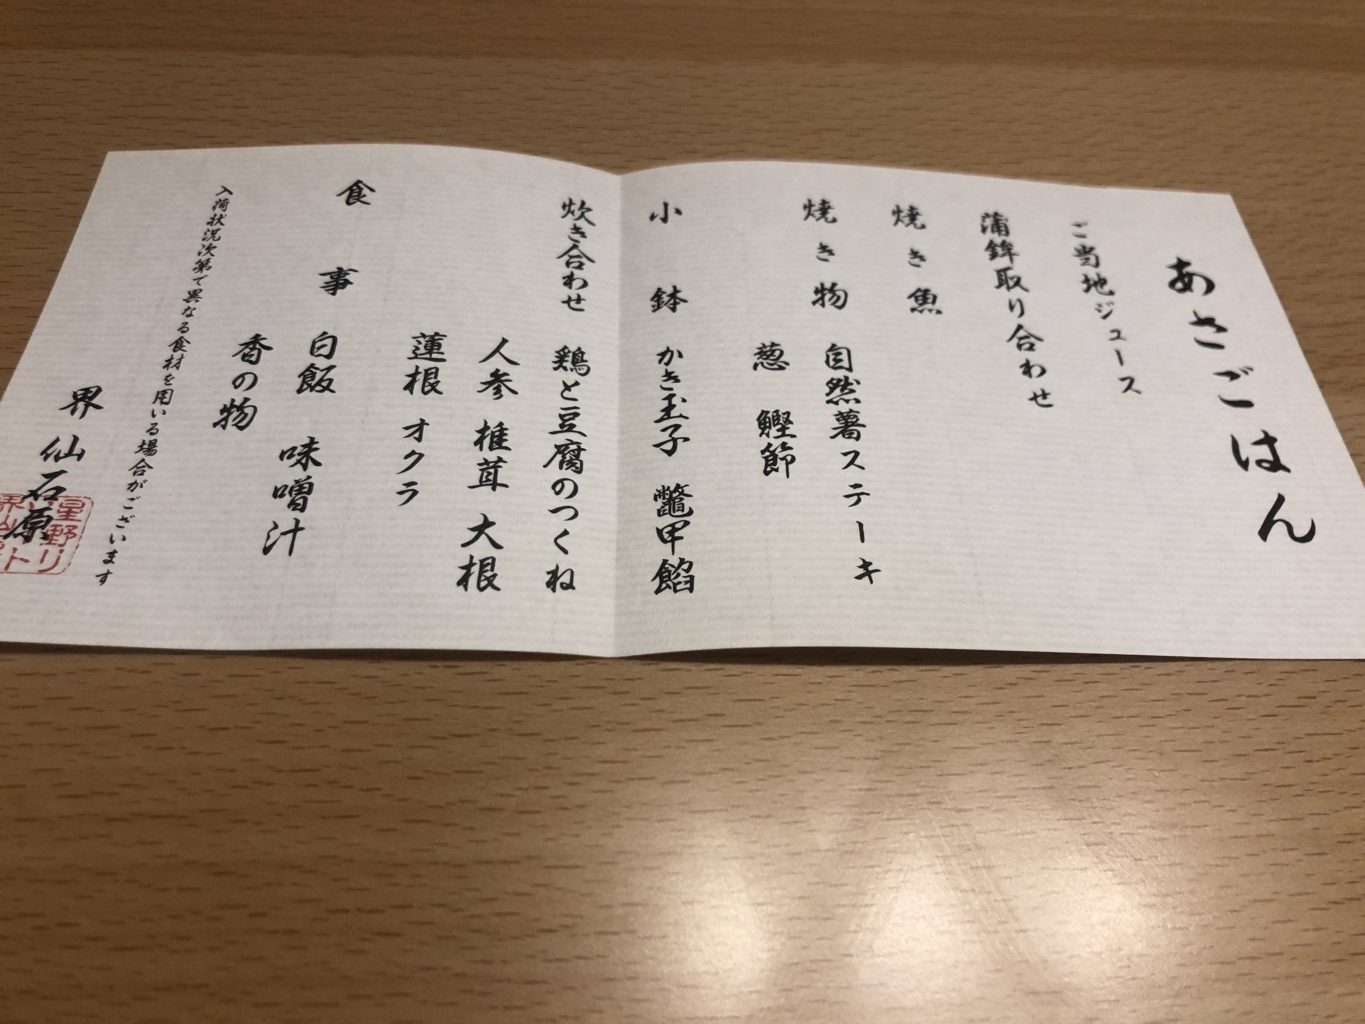 あさごはん
ご当地ジュース
蒲鉾取り合わせ
焼き魚
焼き物 自然薯ステーキ
葱 鰹節
小鉢 かき玉子 鼈甲餡
炊き合わせ 鶏と豆腐のつくね
人参 椎茸 大根
蓮根 オクラ
食事 白飯 味噌汁
香の物
入荷状況次第で異なる食材を用いる場合がございます
界 仙石原
星野リ